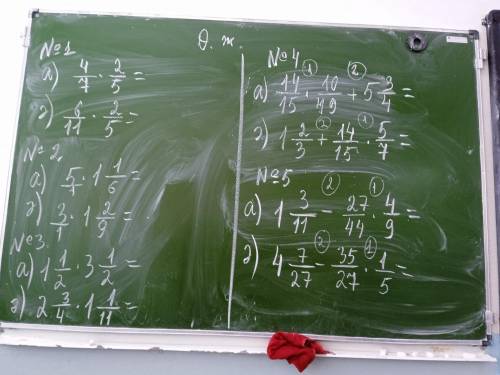 Ө. ж.
№1
а) 4/7 · 2/5 =
ә) 6/11 · 2/5 =
№2
а) 5/7 · 1 1/6 =
ә) 3/1 · 1 2/9 =
№3
а) 1 1/2 · 3 1/2 =
ә) 2 3/4 · 1 1/11 =
№4
① ②
а) 14/15 · 10/49 + 5 3/4 =
② ①
ә) 1 2/3 + 14/15 · 5/7 =
№5
② ①
а) 1 3/11 − 27/44 · 4/9 =
② ①
ә) 4 7/27 − 35/27 · 1/5 =